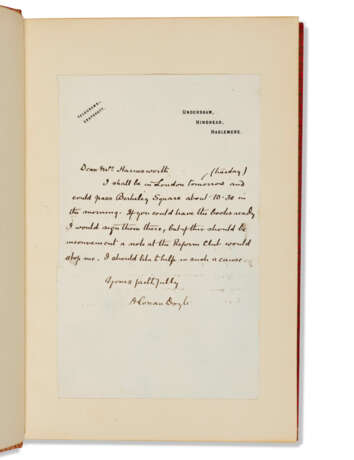 TELEGRAMS—
UNDERSHAW,
HINDHEAD,
HASLEMERE.
Dear Mrs. Harmsworth (tuesday)
I shall be in London tomorrow and
could pass Berkeley Square about 10-30 in
the morning. If you could have the books ready
I would sign them there, but if this should be
inconvenient a note at the Reform Club would
stop me. I should like to help in such a cause.
Yours faithfully
A Conan Doyle